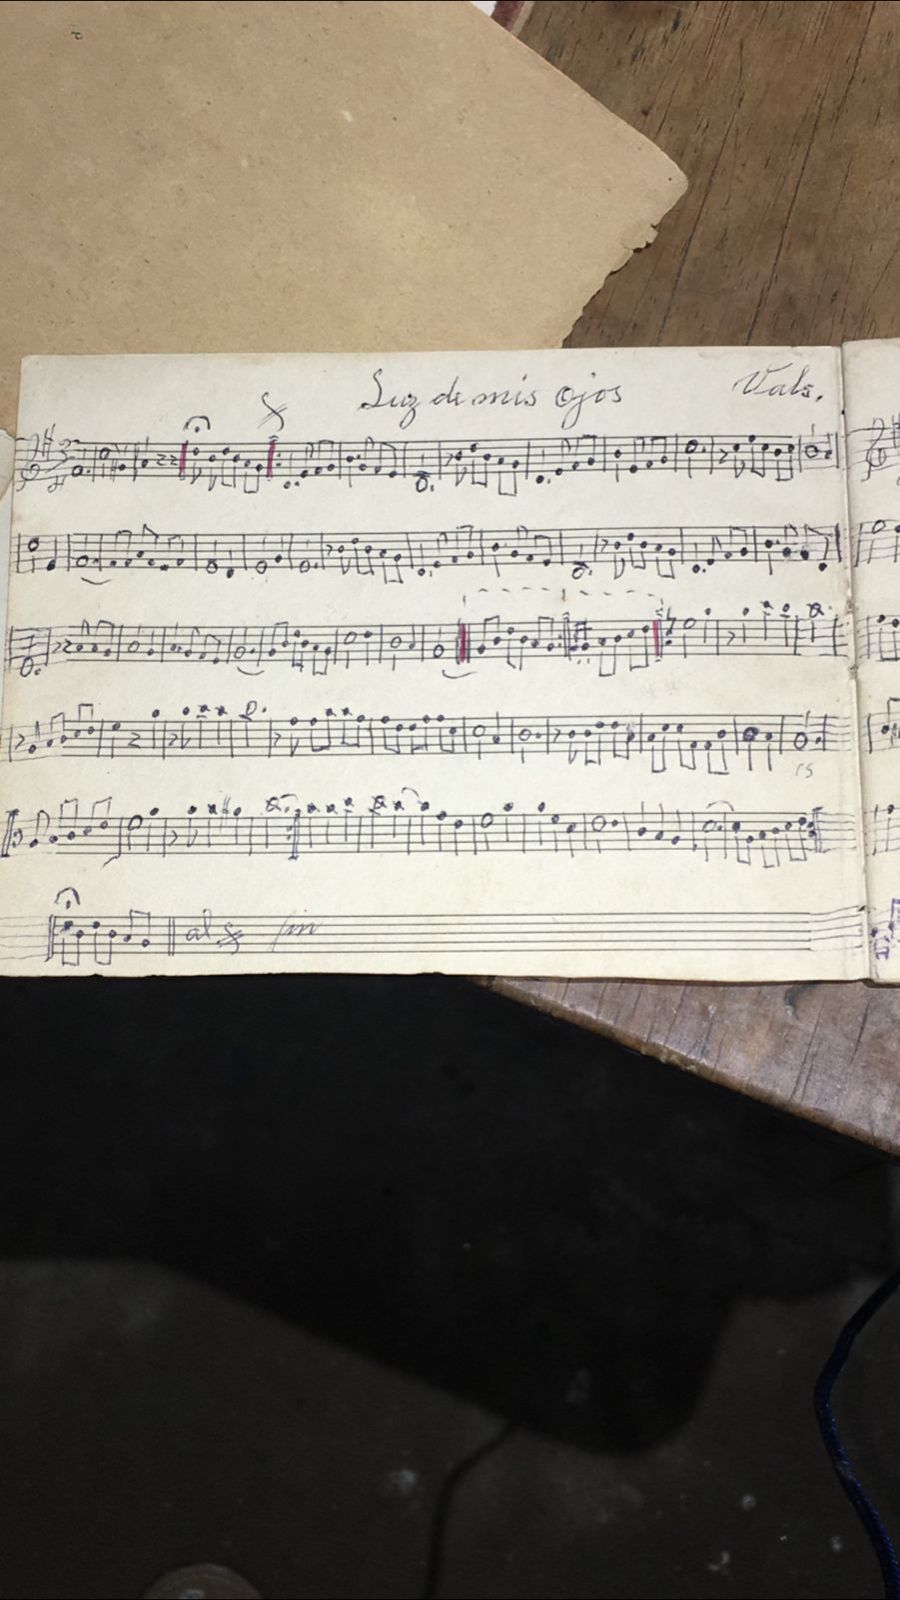 Luz de mis Ojos Vals.
al fin